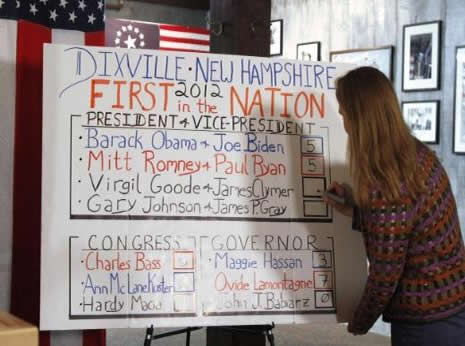 DIXVILLE • NEW HAMPSHIRE
2012
FIRST in the NATION
PRESIDENT & VICE-PRESIDENT
• Barack Obama & Joe Biden 5
• Mitt Romney & Paul Ryan 5
• Virgil Goode & James Clymer
• Gary Johnson & James P. Gray
CONGRESS
• Charles Bass
• Ann McLane Kuster
• Hardy Macia
GOVERNOR
• Maggie Hassan 3
• Ovide Lamontagne 7
• John J. Babiarz 0